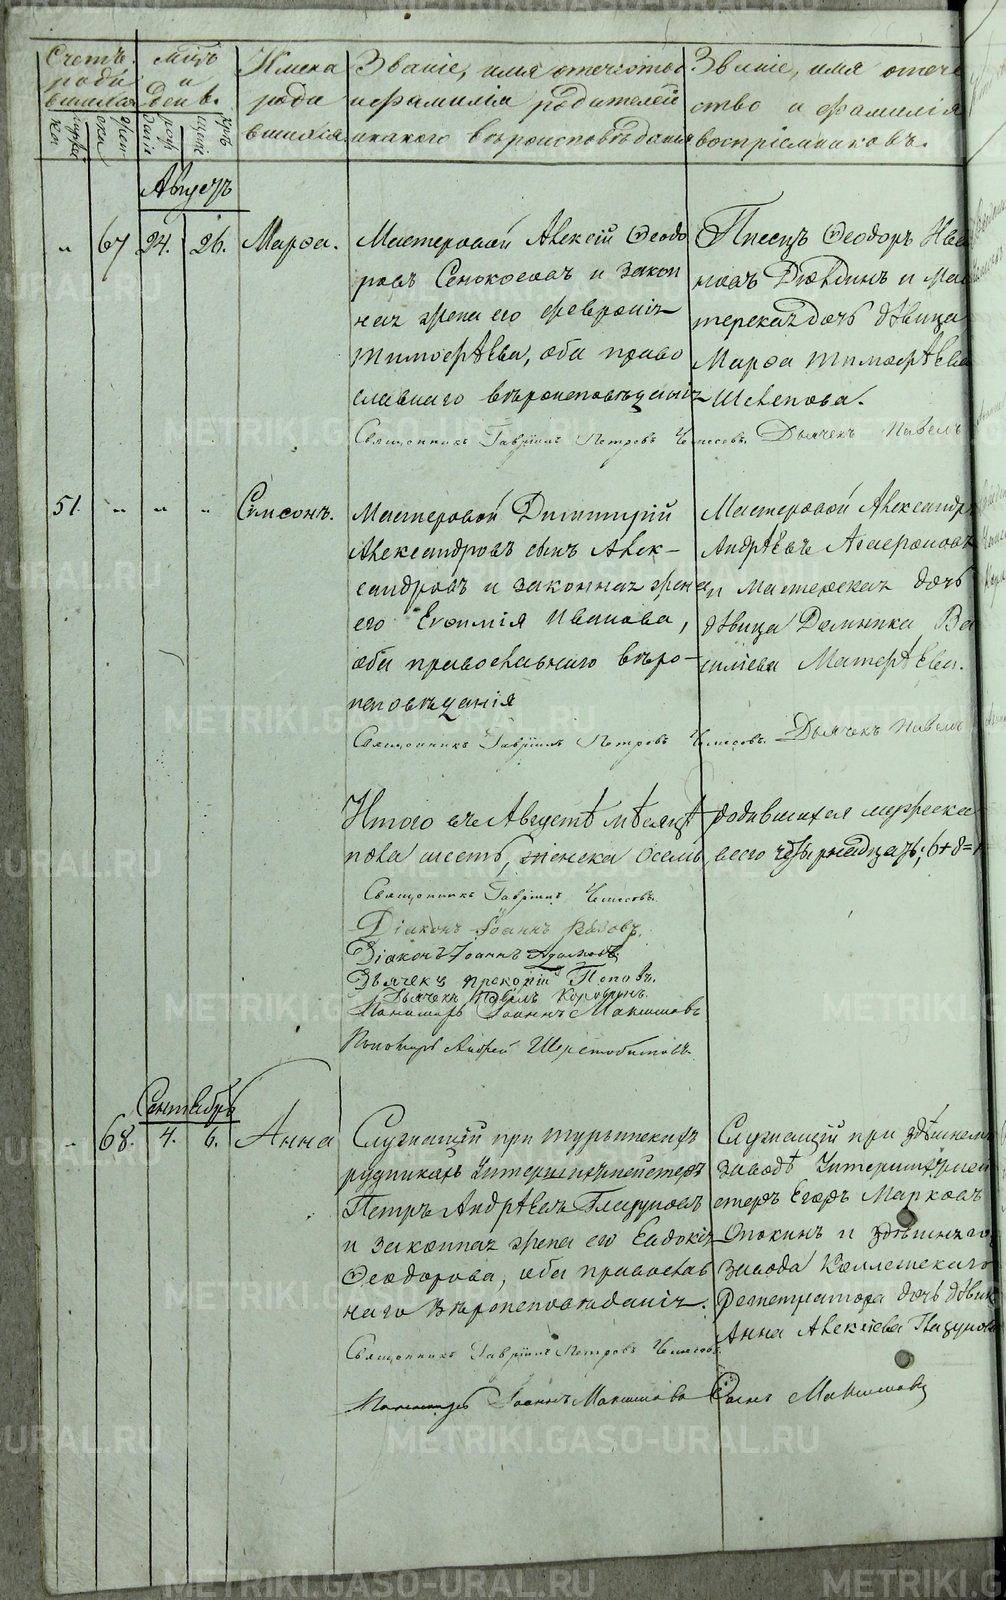 Счетъ роди вшихся
Мцъ и День.
Имена роди вшихся
Званіе, имя отечество и фамилія родителей и какого вѣроисповѣданія
Званіе, имя отече ство и фамилія воспріемниковъ.
Августъ
" 67 24. 26. Марѳа.
Мастеровой Алексій Ѳеодо
ровъ Сенокосовъ и закон
ная жена его Февронія
Тимофѣева, оба право
славнаго вѣроисповѣданія
Писецъ Ѳеодоръ Ива
новъ и Мас
терская дочь дѣвица
Марѳа Тимофѣева
Священникъ Гавріилъ Петровъ Дьячекъ Павелъ
51. " " " Сампсонъ.
Мастеровой Димитрій
Александровъ сынъ Алек-
сандровъ и законная жена
его Евѳимія Иванова,
оба православнаго вѣро-
исповѣданія
Мастеровой Александръ
Андрѣевъ
и Мастерская дочь
дѣвица Ва
силіева
Священникъ Гавріилъ Петровъ Дьячекъ Павелъ
Итого въ Августѣ мѣсяцѣ родившихся мужеска
пола шесть, женска осемь, всего четырнадцать; 6+8=1
Священникъ Гавріилъ
Діаконъ Іоаннъ
Діаконъ Іоаннъ
Дьячекъ Поповъ.
Дьячекъ Павелъ Коровинъ.
Пономарь Іоаннъ Максимовъ
Пономарь Андрей Шерстобитовъ.
Сентябрь
" 68. 4. 6. Анна
Служащій при Турьинскихъ
рудникахъ
Петръ Андрѣевъ Глазуновъ
и законная жена его Евдокія
Ѳеодорова, оба православ
наго вѣроисповѣданія.
Служащій при здѣшнемъ
заводѣ
Егоръ Марковъ
и здѣшняго
завода Коллежскаго
Регистратора дочь дѣвица
Анна Алексіева Глазунова
Священникъ Гавріилъ Петровъ
Пономарь Іоаннъ Максимовъ Іоаннъ Максимовъ
METRIKI.GASO-URAL.RU